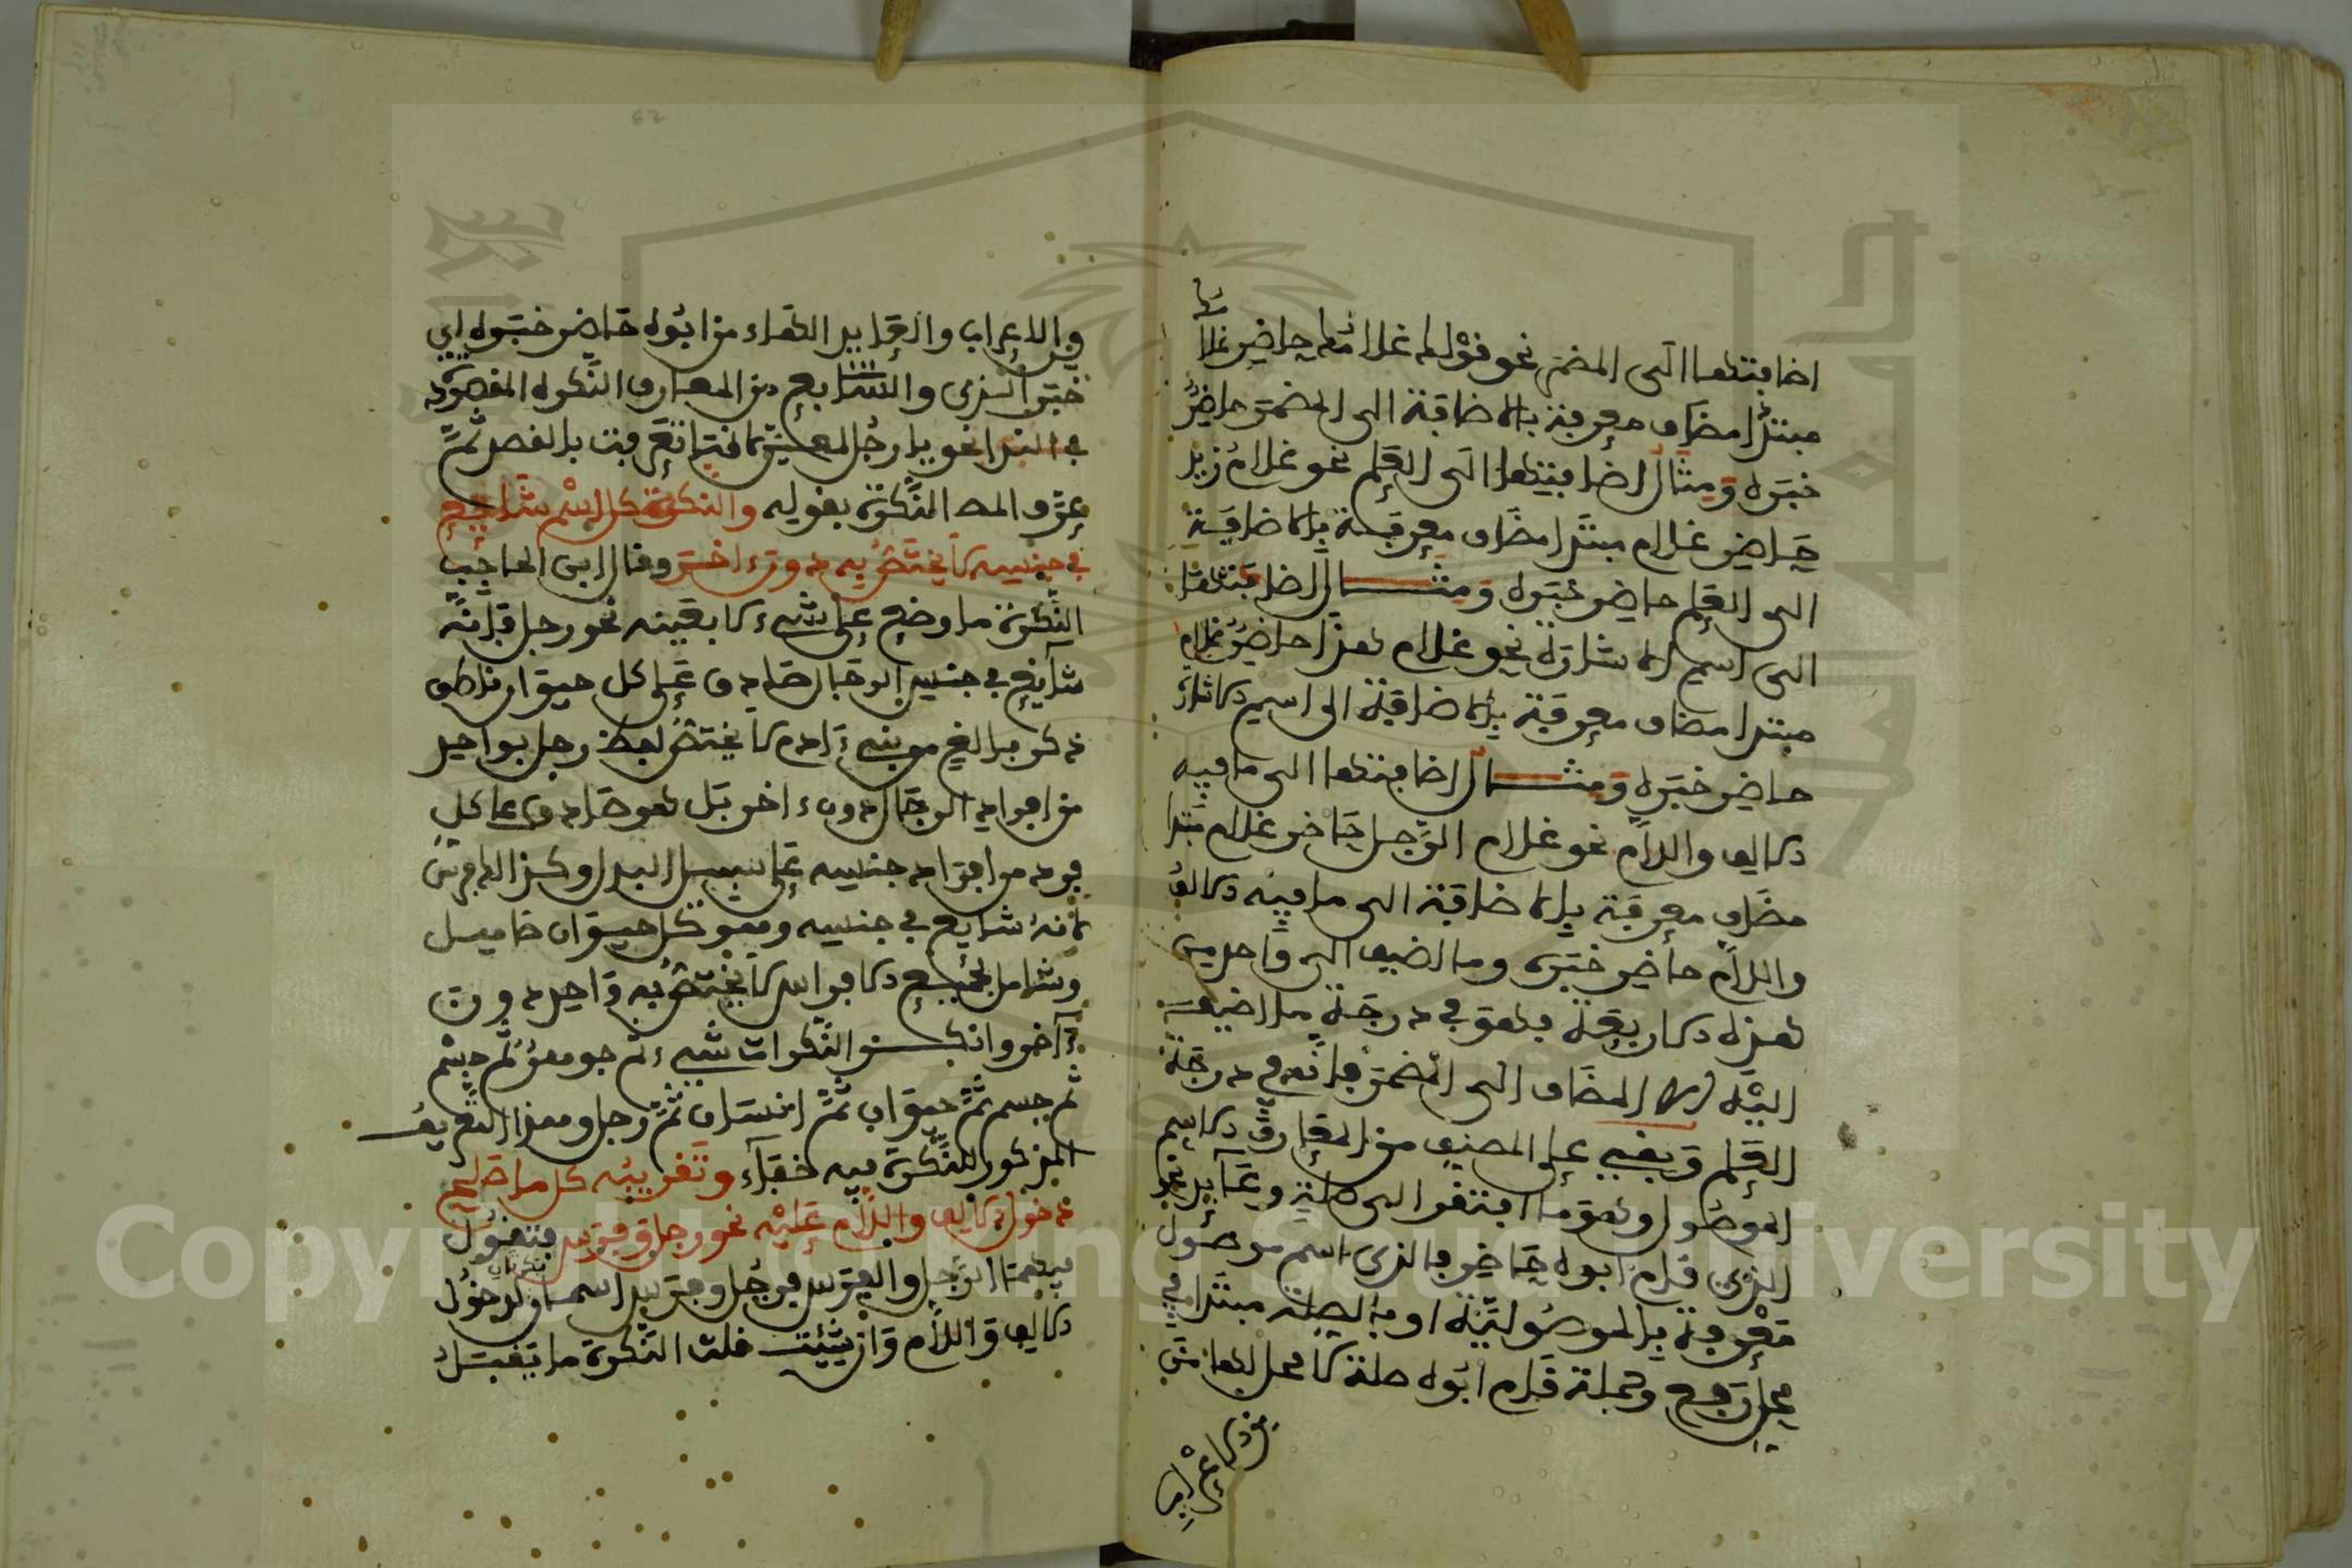 اضافتها الى المضمر نحو قولك غلامك حاضر غلا
مبتدأ مضاف معرفة بالاضافة الى المضمر حاضر
خبره ومثال اضافتها الى العلم نحو غلام زيد
حاضر غلام مبتدا مضاف معرفة بالاضافة
الى العلم حاضر خبره ومثال اضافتها
الى اسم الاشارة نحو غلام هذا حاضر غلام
مبتدا مضاف معرفة بالاضافة الى اسم الاشارة
حاضر خبره ومثال اضافتها الى ما فيه
الالف واللام نحو غلام الرجل حاضر غلام مبتدا
مضاف معرفة بالاضافة الى ما فيه الالف
واللام حاضر خبره وما اضيف الى واحد من
هذه الاربعة فهو في درجة ما اضيف
اليه الا المضاف الى المضمر فانه في درجة
العلم وبقي على المصنف من المعارف الاسم
الموصول وهو ما افتقر الى صلة وعايد نحو
الذي قام ابوه حاضر فالذي اسم موصول
معرفة بالموصولية او بالصلة مبتدا في
محل رفع وجملة قام ابوه صلة لا محل لها من
من الاعراب
والاعراب والعايد الهاء من ابوه حاضر خبره اي
خبر الذي والسابع من المعارف النكرة المقصودة
في الندا نحو يا رجل لمعين لانها تعرفت بالقصد ثم
عرف المص النكرة بقوله والنكرة كل اسم شايع
في جنسه لا يختص به دون ءاخر وقال ابن الحاجب
النكرة ما وضع على شيء لا بعينه نحو رجل فانه
شايع في جنس الرجال صادق على كل حيوان ناطق
ذكر بالغ من بني ءادم لا يختص لفظ رجل بواحد
من افراد الرجال دون ءاخر بل هو صادق على كل
فرد من افراد جنسه على سبيل البدل وكذا الفرس
لانه شايع في جنسه وهو كل حيوان صاهل
وشامل لجميع الافراس لا يختص به واحد دون
ءاخر وانكر النكرات شيء ثم جوهر ثم جسم
ثم جسم ثم حيوان ثم انسان ثم رجل وهذا التعريف
المذكور للنكرة فيه خفاء وتقريبه كل ما صلح
دخول الالف واللام عليه نحو رجل وفرس فتقول
فيهما الرجل والفرس فرجل وفرس اسمان نكرتان لدخول
الالف واللام وان شئت قلت النكرة ما يقبل